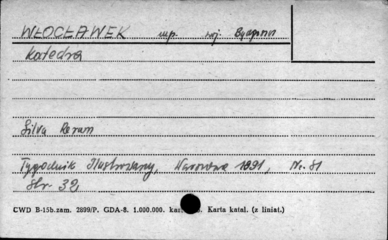 WŁOCŁAWEK woj. Bydgoszcz
Katedra
Silva Rerum
Tygodnik Ilustrowany, Warszawa 1891, Nr. 81
Str 32
CWD B-15b.zam. 2899/P. GDA-8. 1.000.000. Karta katal. (z liniat.)